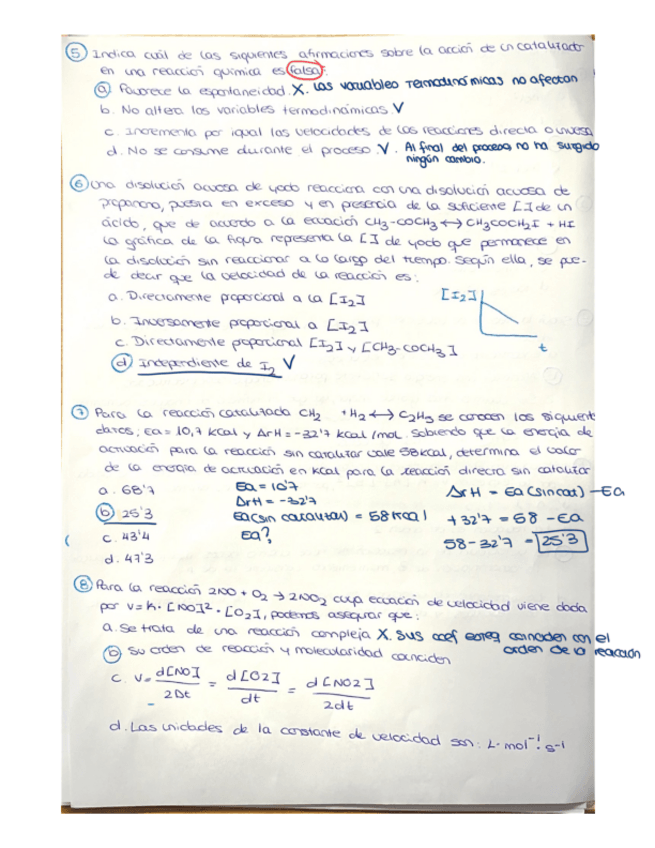 5 Indica cuál de las siguientes afirmaciones sobre la acción de un catalizador
en una reacción química es falsa:
a Favorece la espontaneidad. X. Las variables Termodinámicas no afectan
b. No altera las variables termodinámicas V
c. Incrementa por igual las velocidades de las reacciones directa o inversa
d. No se consume durante el proceso V. Al final del proceso no ha surgido
ningún cambio.
6 Una disolución acuosa de yodo reacciona con una disolución acuosa de
propanona, puesta en exceso y en presencia de la suficiente [] de un
ácido, que de acuerdo a la ecuación CH3-COCH3 ↔ CH3COCH2I + HI
La gráfica de la figura representa la [] de yodo que permanece en
la disolución sin reaccionar a lo largo del tiempo. Según ella, se pue-
de decir que la velocidad de la reacción es:
a. Directamente proporcional a la [I2]
[I2]
b. Inversamente proporcional a [I2]
c. Directamente proporcional [I2] y [CH3-COCH3]
t
d Independiente de I2 V
7 Para la reacción catalizada CH2 + H2 ↔ C2H3 se conocen los siguient
datos; Ea = 10,7 kcal y ΔrH = -32'7 kcal/mol. Sabiendo que la energía de
activación para la reacción sin catalizar vale 58kcal, determina el valor
de la energía de activación en kcal para la reacción directa sin catalizar
a. 68'7
Ea = 10'7
ΔrH = Ea(sin cat) - Ea
b 25'3
ΔrH = -32'7
c. 43'4
Ea(sin catalizar) = 58kcal
+32'7 = 58 - Ea
Ea?
58-32'7 = 25'3
d. 47'3
8 Para la reacción 2NO + O2 → 2NO2 cuya ecuación de velocidad viene dada
por v = k · [NO]2 · [O2], podemos asegurar que:
a. Se trata de una reacción compleja X. Sus coef esteq coinciden con el
orden de la reacción
b Su orden de reacción y molecularidad coinciden
c. v = d[NO]/2Dt = d[O2]/dt = d[NO2]/2dt
d. Las unidades de la constante de velocidad son: L·mol-1·s-1